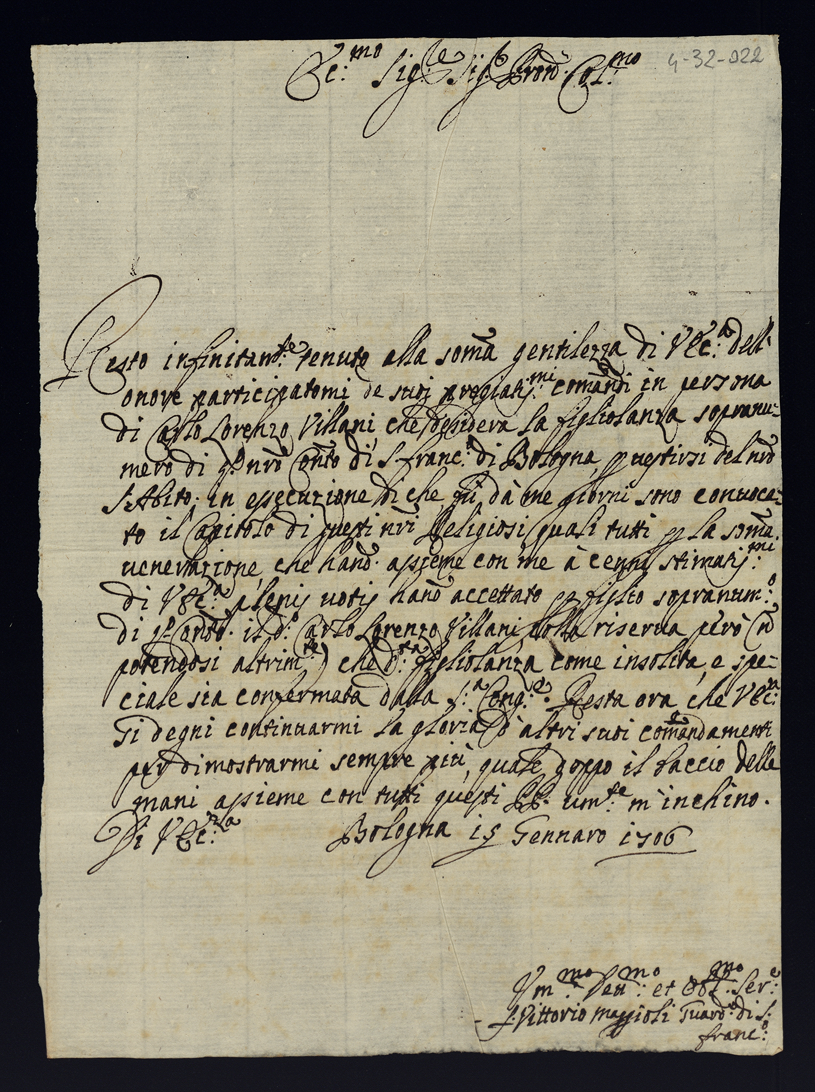 Ecc:mo Sig:re Sig:r Pron Col:mo
4-32-022
Resto infinitam:te tenuto alla soma gentilezza di V Ecc:a dell'
onore participatomi de suoi pregiatis:mi comandi in persona
di Carlo Lorenzo Villani che desidera la figliolanza sopranu-
mero di qto nro Conto di S. Franc:o di Bologna p vestirsi del nro
S. Abito; in essecuzione di che già da me giorni sono convoca-
to il Capitolo di questi nri Religiosi quali tutti p la soma
venerazione che hano assieme con me à cenni stimatis:mi
di V Ecc:za plenis votis hano accettato p figlio sopranum:o
di qto Conto il do Carlo Lorenzo Villani colla riserva però (n
potendosi altrim:te) che d:ta figliolanza come insolita, e spe-
ciale sia confermata dalla S:a Cong:e. Resta ora che V Ecc:za
si degni continuarmi la gloria d'altri suoi comandamenti
per dimostrarmi sempre più, quale doppo il baccio delle
mani assieme con tutti questi PP. um:te m'inchino.
Di V Ecc:za Bologna 15 Gennaro 1706
Um:mo Deu:mo et Obl:mo Ser:e
F. Vittorio Maggioli Guard:o di S:
Franc:o